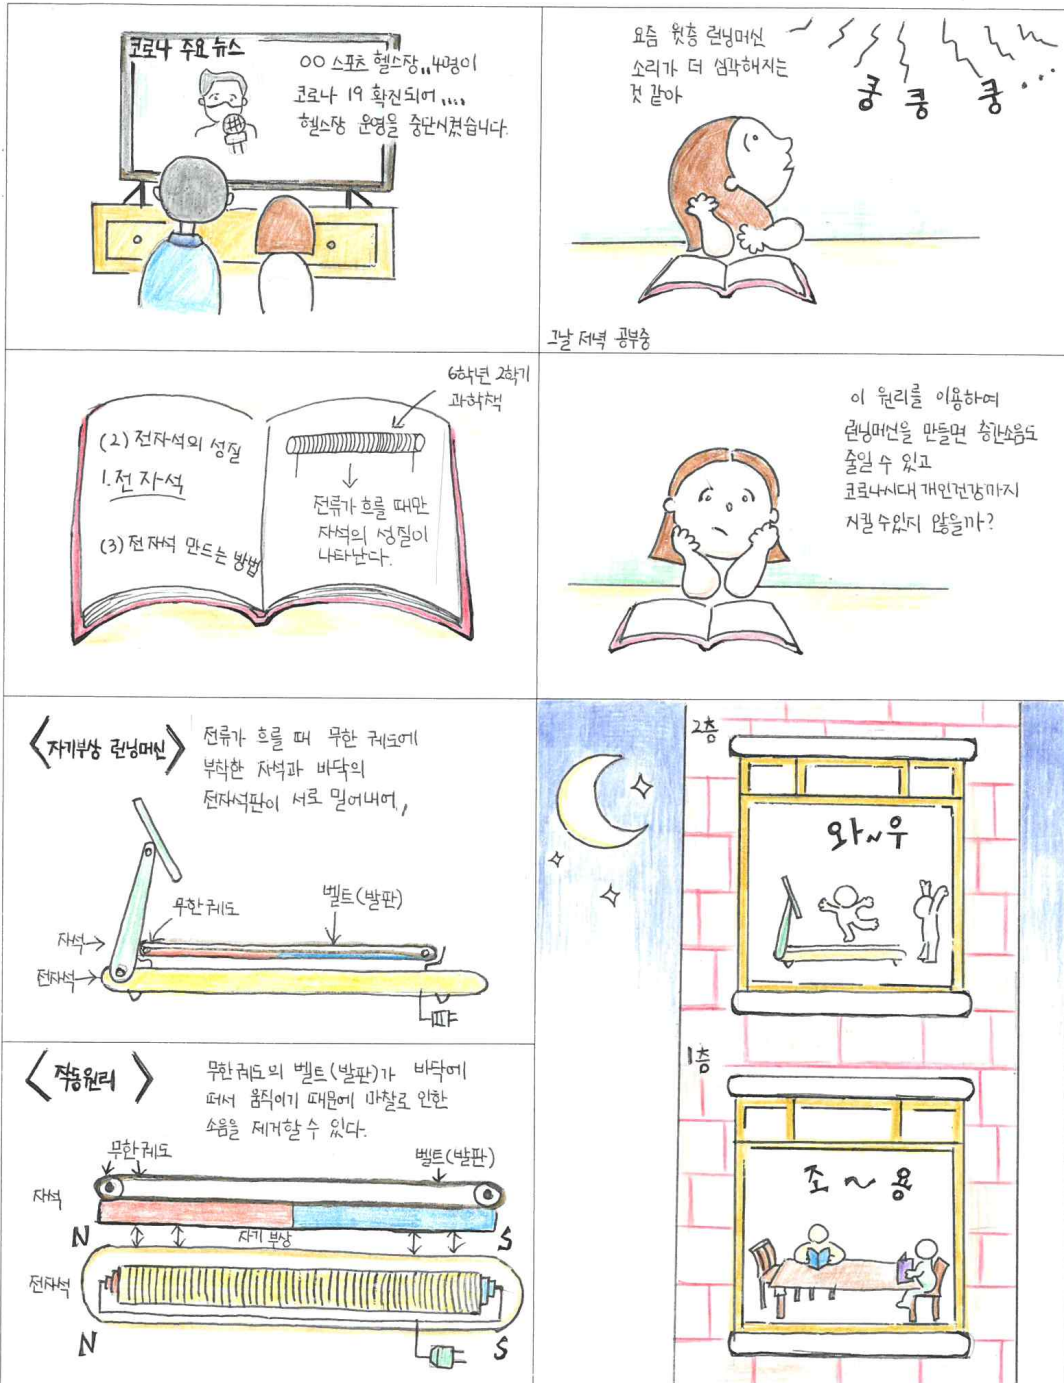 코로나 주요 뉴스
OO 스포츠 헬스장,, 4명이
코로나 19 확진되어 ,,,,
헬스장 운영을 중단시켰습니다.
요즘 윗층 런닝머신
소리가 더 심각해지는
것 같아
쿵 쿵 쿵...
그날 저녁 공부중
6학년 2학기
과학책
(2) 전자석의 성질
1. 전자석
(3) 전자석 만드는 방법
전류가 흐를 때만
자석의 성질이
나타난다.
이 원리를 이용하여
런닝머신을 만들면 층간소음도
줄일 수 있고
코로나시대 개인건강까지
지킬 수 있지 않을까?
<자기부상 런닝머신>
전류가 흐를 때 무한 궤도에
부착한 자석과 바닥의
전자석판이 서로 밀어내어,,
무한궤도
벨트(발판)
자석
전자석
<작동원리>
무한궤도의 벨트(발판)가 바닥에
떠서 움직이기 때문에 마찰로 인한
소음을 제거할 수 있다.
무한궤도
벨트(발판)
자석
N
자기 부상
S
전자석
N
S
2층
와~우
1층
조~용